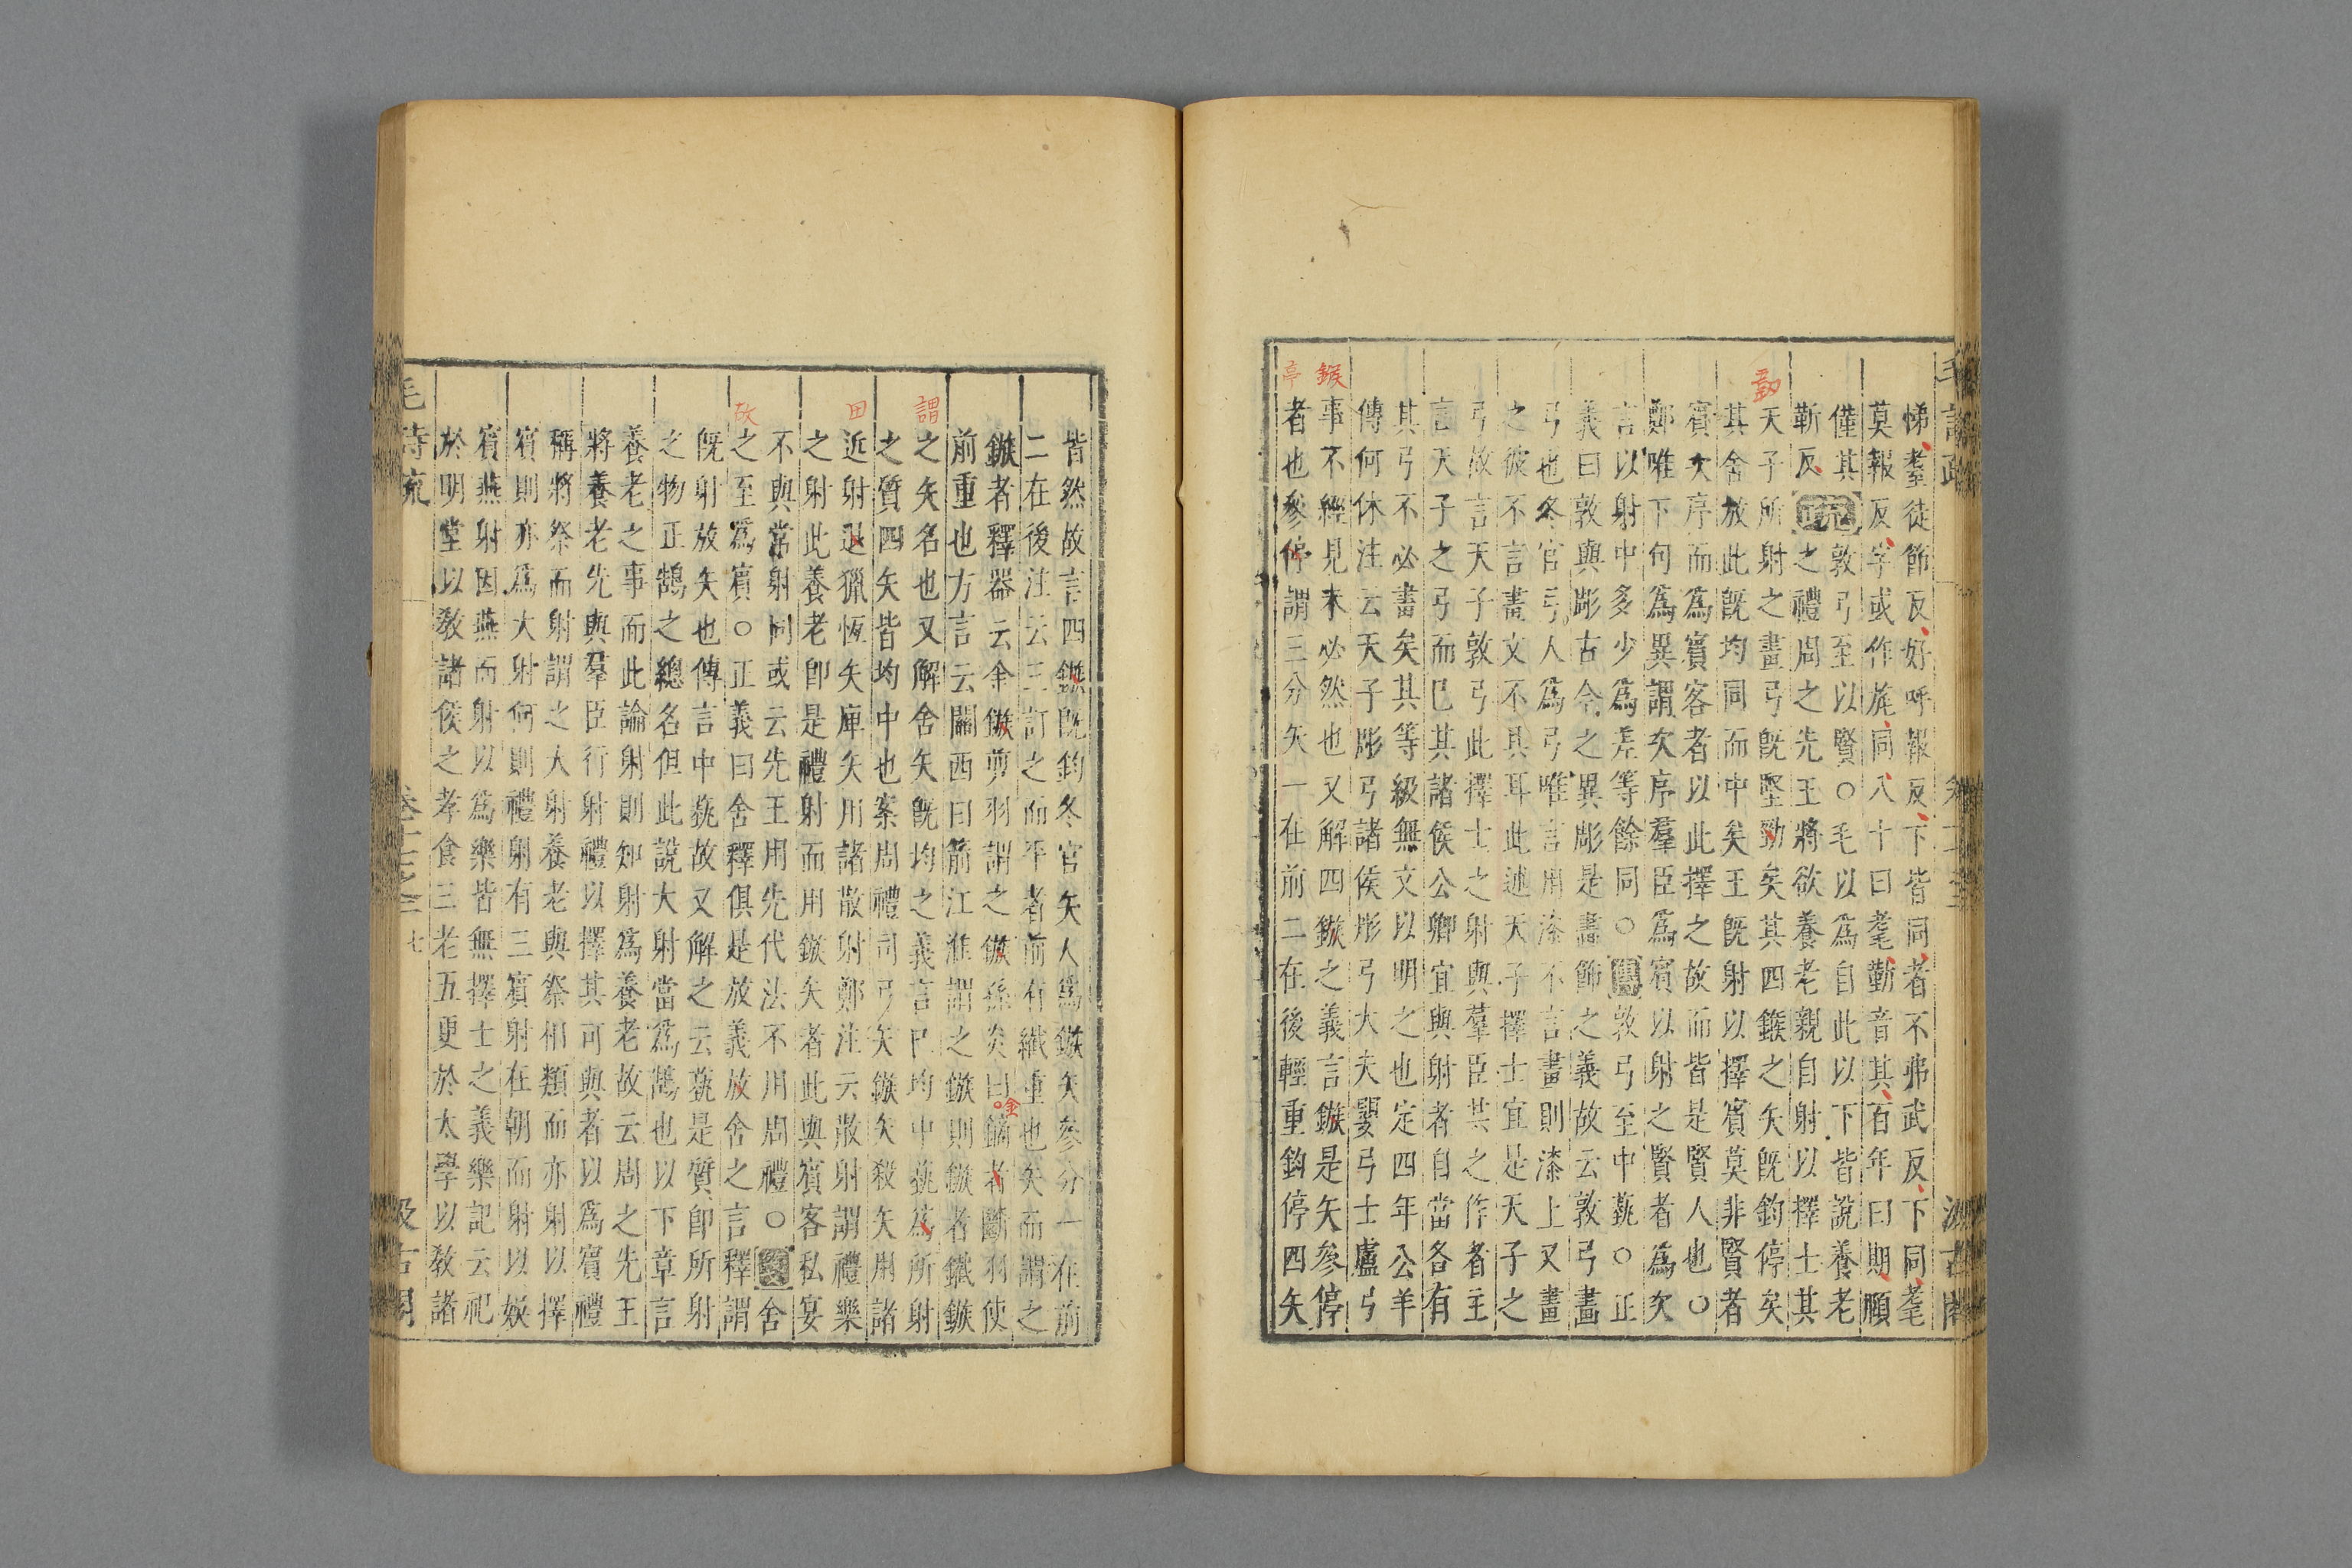 悌耋徒節反好呼報反下皆同者不弗武反下同耄
莫報反字或作旄同八十曰耄勤音其百年曰期頤
僅其敦弓至以賢○毛以爲自此以下皆說養老
靳反正義之禮周之先王將欲養老親自射以擇士其
天子所射之畫弓旣堅勁矣其四鍭之矢旣鈞停矣
其舍放此旣均同而中矣王旣射以擇賓莫非賢者
賓次序而爲賓客者以此擇之故而皆是賢人也○
鄭唯下句爲異謂次序羣臣爲賓以射之賢者爲次
言以射中多少爲差等餘同○傳敦弓至中蓺○正
義曰敦與彫古今之異彫是畫飾之義故云敦弓畫
弓也冬官弓人爲弓唯言用漆不言畫則漆上又畫
之彼不言畫文不具耳此述天子擇士宜是天子之
弓故言天子敦弓此擇士之射與羣臣共之作者主
言天子之弓而已其諸侯公卿宜與射者自當各有
其弓不必畫矣其等級無文以明之也定四年公羊
傳何休注云天子彫弓諸侯彤弓大夫嬰弓士盧弓
事不經見未必然也又解四鏃之義言鏃是矢參停
者也參停謂三分矢一在前二在後輕重鈞停四矢
皆然故言四鏃旣鈞冬官矢人爲鏃矢參分一在前
二在後注云三訂之而平者前有鐵重也矢而謂之
鏃者釋器云金鏃剪羽謂之鏃孫炎曰鏑者斷羽使
前重也方言云關西曰箭江淮謂之鏃則鏃者鐵鏃
之矢名也又解舍矢旣均之義言已均中蓺爲所射
之質四矢皆均中也案周禮司弓矢鏃矢殺矢用諸
近射退獵恆矢庳矢用諸散射鄭注云散射謂禮樂
之射此養老卽是禮射而用鏃矢者此與賓客私宴
不與常射同或云先王用先代法不用周禮○箋舍
之至爲賓○正義曰舍釋俱是放義放舍之言釋謂
旣射放矢也傳言中蓺故又解之云蓺是質卽所射
之物正鵠之總名但此說大射當爲鵠也以下章言
養老之事而此論射則知射爲養老故云周之先王
將養老先與羣臣行射禮以擇其可與者以爲賓禮
稱將祭而射謂之大射養老與祭相類而亦射以擇
賓則亦爲大射何則禮射有三賓射在朝而射以娱
賓燕射因燕而射以爲樂皆無擇士之義樂記云祀
於明堂以敎諸侯之孝食三老五更於太學以敎諸
毛詩疏
卷十七之二
七
汲古閣
勁
鍭
亭
謂
田
故
金